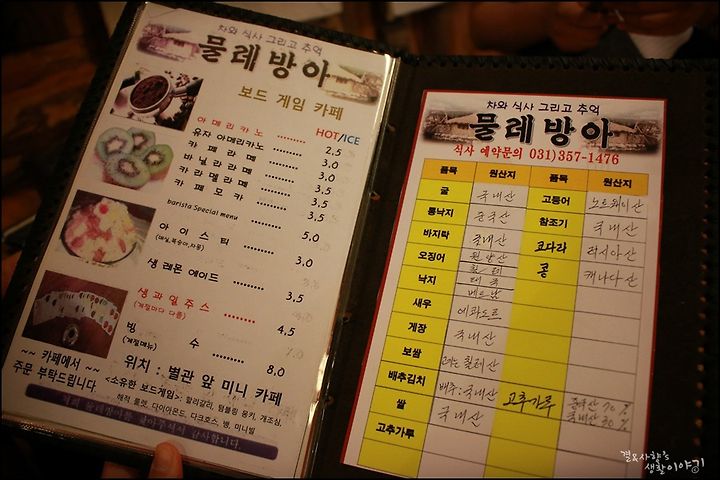 차와 식사 그리고 추억
물레방아
보드 게임 카페
HOT/ICE
아메리카노 ......... 2.5
유자 아메리카노 ......... 3.0
카페라떼 ......... 3.0
바닐라라떼 ......... 3.5
카라멜라떼 ......... 3.5
카페모카 ......... 3.5
barista Special menu ......... 5.0
아이스티 ......... 3.0
(매실,복숭아,자몽)
생 레몬 에이드 ......... 3.5
생과일주스 ......... 4.5
(계절마다 다름)
빙수 ......... 8.0
(계절메뉴)
~~ 카페에서 ~~
주문 부탁드립니다
위치 : 별관 앞 미니 카페
<소유한 보드게임>: 할리갈리, 텀블링 몽키, 개조심,
해적 룰렛, 다이아몬드, 다크호스, 뱅, 미니빌
저희 물레방아를 찾아주셔서 감사합니다.
차와 식사 그리고 추억
물레방아
식사 예약문의 031)357-1476
품목 원산지 품목 원산지
굴 국내산 고등어 노르웨이산
통낙지 중국산 참조기 국내산
바지락 국내산 코다리 러시아산
오징어 원양산 콩 캐나다산
칠레
낙지 태국
베트남
새우 에콰도르
게장 국내산
보쌈 칠레산
배추김치 배추:국내산 고춧가루 중국산 70%
국내산 30%
쌀 국내산
고춧가루
결&사랑's
생활이야기